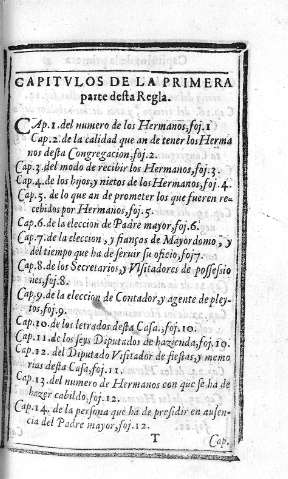 CAPITVLOS DE LA PRIMERA
parte desta Regla.
CAp. 1. del numero de los Hermanos, foj. 1
Cap. 2. de la calidad que an de tener los Herma
nos desta Congregacion, foj. 2.
Cap. 3. del modo de recibir los Hermanos, foj. 3.
Cap. 4. de los hijos, y nietos de los Hermanos, foj. 4.
Cap. 5. de lo que an de prometer los que fueren re-
cebidos por Hermanos, foj. 5.
Cap. 6. de la eleccion de Padre mayor, foj. 6.
Cap. 7. de la eleccion, y fianças de Mayordomo, y
del tiempo que ha de seruir su oficio, foj 7.
Cap. 8. de los Secretarios, y Visitadores de possessio
nes, foj. 8.
Cap. 9. de la eleccion de Contador, y agente de pley-
tos, foj. 9.
Cap. 10. de los letrados desta Casa, foj. 10.
Cap. 11. de los seys Diputados de hazienda, foj. 10.
Cap. 12. del Diputado Visitador de fiestas, y memo
rias desta Casa, foj. 11.
Cap. 13. del numero de Hermanos con que se ha de
hazer cabildo, foj. 12.
Cap. 14. de la persona que ha de presidir en ausen-
cia del Padre mayor, foj. 12.
T
Cap.